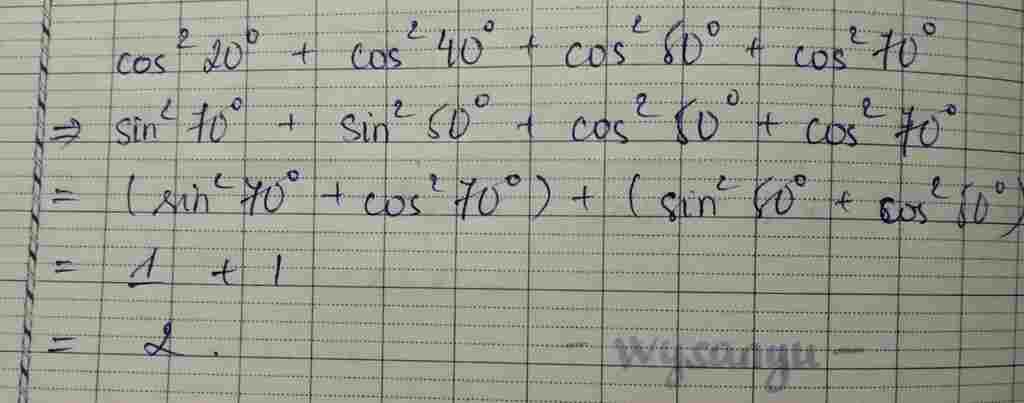 cos² 20° + cos² 40° + cos² 50° + cos² 70°
⇒ sin² 70° + sin² 50° + cos² 50° + cos² 70°
= (sin² 70° + cos² 70°) + (sin² 50° + cos² 50°)
= 1 + 1
= 2.